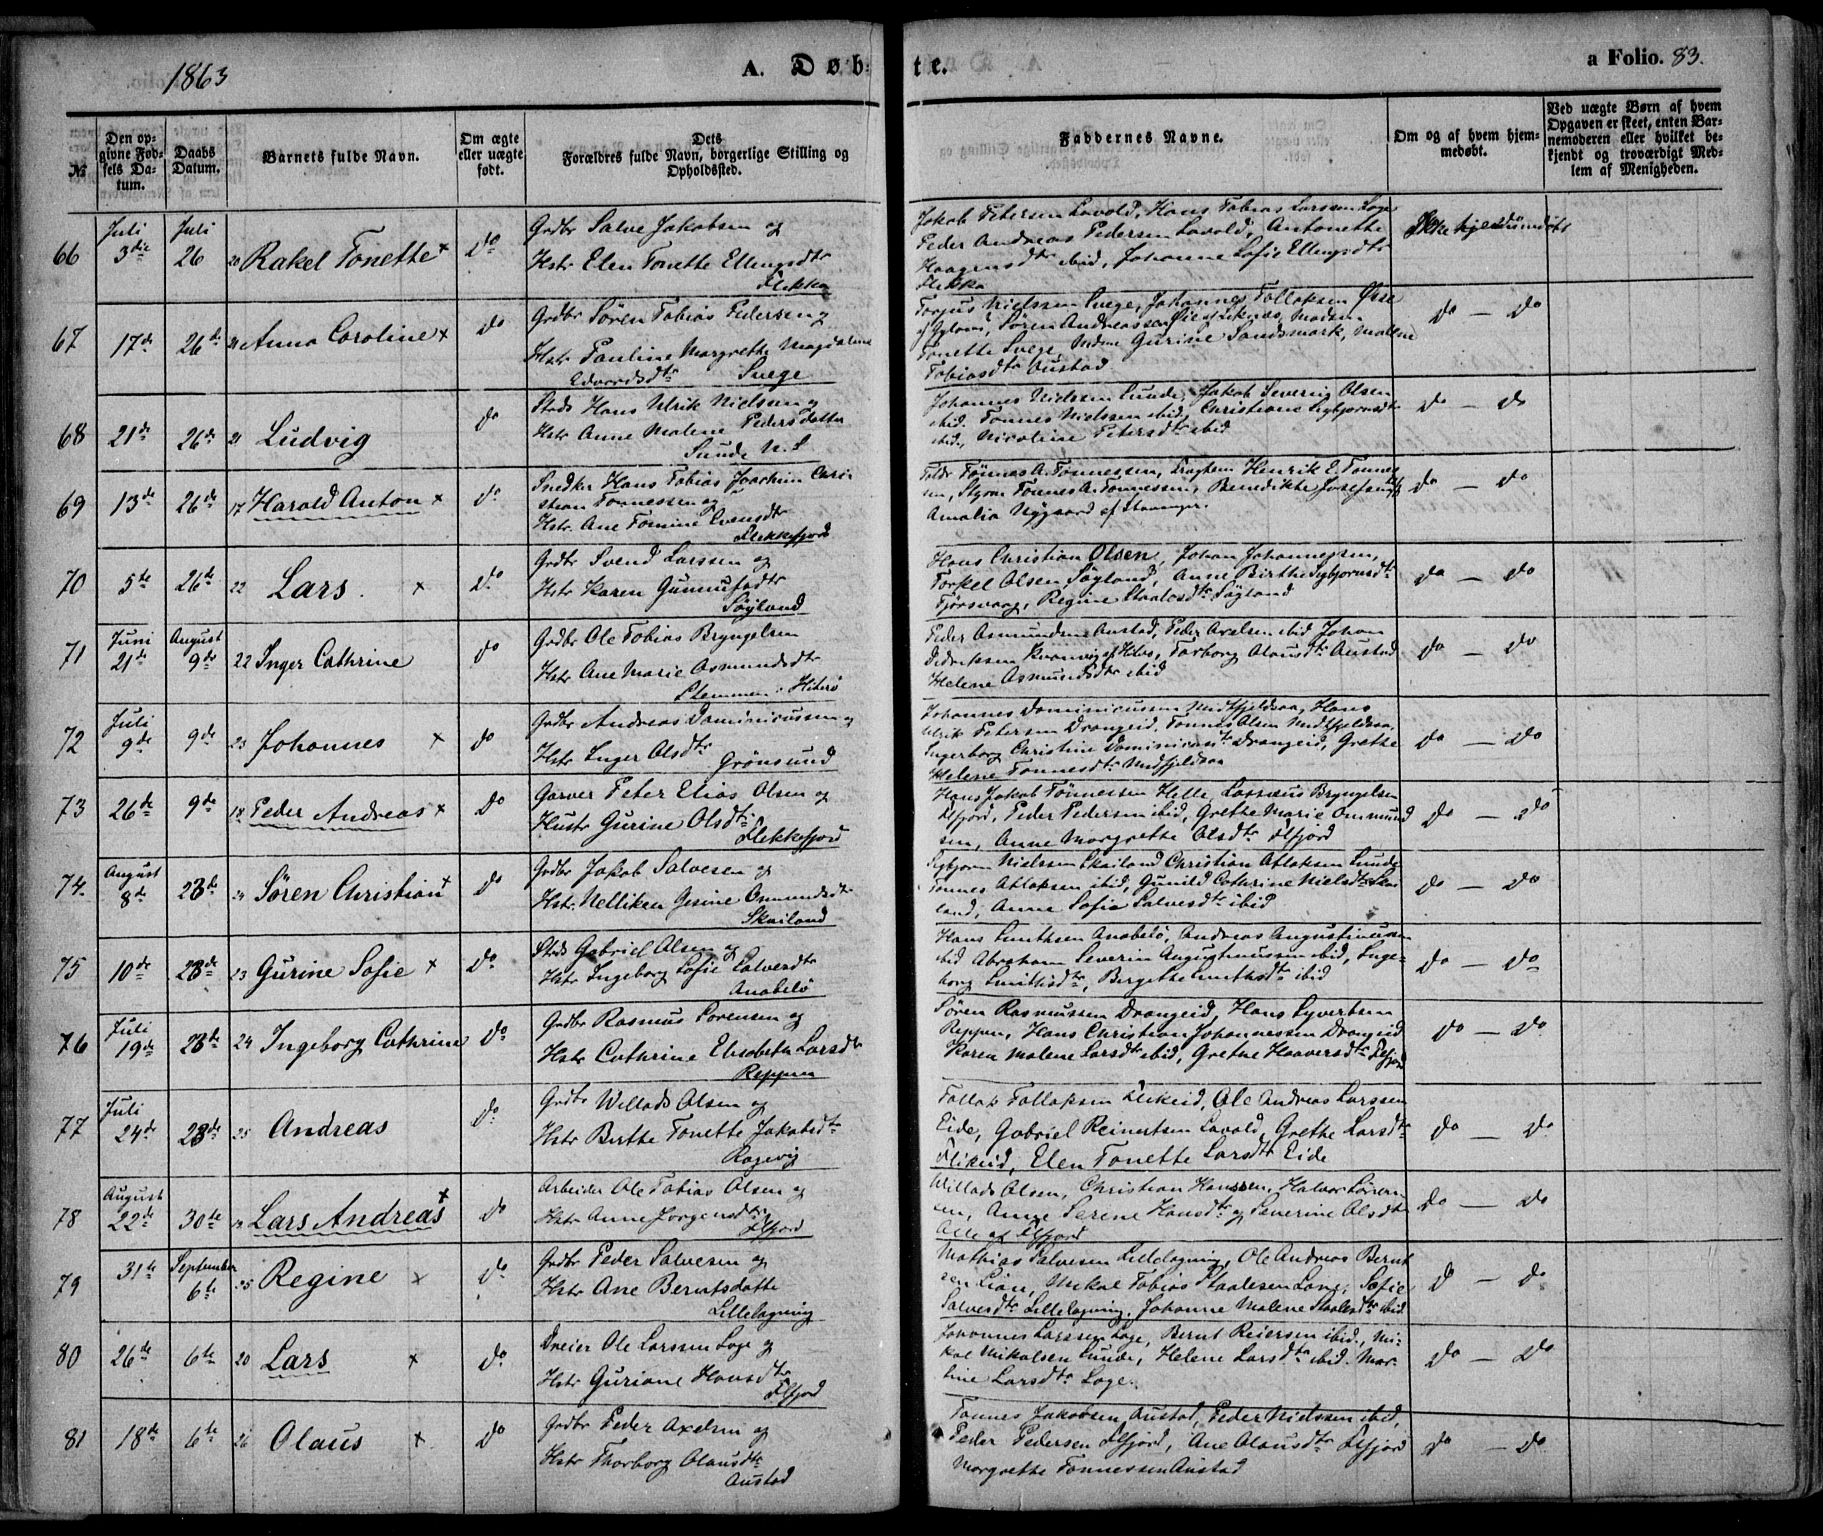 1863
A. Døbte.
a Folio. 83.
No
Den opgivne Fødsels Datum.
Daabs Datum.
Barnets fulde Navn.
Om ægte eller uægte født.
Dets Forældres fulde Navn, borgerlige Stilling og Opholdssted.
Faddernes Navne.
Om og af hvem hjemmedøbt.
Ved uægte Børn af hvem Opgaven er skeet, enten Barnemoderen eller hvilket bekjendt og troværdigt Medlem af Menigheden.
66 Juli 3die Juli 26 20 Rakel Tonette x Do
Grdbr Salve Jakobsen og
Hstr Elen Tonette Ellingsdtr
Flikka
Jakob Petersen Lavold, Hans Tobias Larssen Loge
Peder Andreas Pedersen Lavold, Antonette
Haagensdtr ibid, Johanne Sofie Ellingsdtr
Flikka
Ikke hjemmedøbt
67 17de 26de 21 Anna Caroline x do
Grdbr Søren Tobias Pedersen og
Hstr Pauline Margrethe Magdalene
Edvardsdtr Svege
Torjus Nielssen Svege, Johannes Tollaksen
Søren Andreassen
Tonette Svege, Gurine Sandsmark, Malene
Tobiasdtr Austad
do — do
68 21de 26de 21 Ludvig do
Stds Hans Ulrik Nielsen og
Hstr Anne Malene Pedersdatter
Sunde N.S
Johannes Nielssen Sunde, Jakob Severin Olsen
ibid. Tonnes Nielssen ibid, Christiane Sigbjørnsdtr
ibid, Nicoline Petersdtr ibid
do — do
69 13de 26de 17 Harald Anton x do
Snedker Hans Tobias Joachim Chri-
stian Tonnessen og
Hstr Ane Tomine Svensdtr
Flekkefjord
Tønnes A. Tønnessen, Henrik E. Tonnes-
sen, Styrm Tønnes A. Tønnessen, Benedikte
Amalia Nygaard af Stavanger.
do — do
70 5te 26de 22 Lars x do
Grdbr Svend Larssen og
Hstr Karen Gunnufsdtr
Søyland
Hans Christian Olsen, Johan Johannessen,
Torkel Olsen Søyland, Anne Birthe Sigbjørnsdtr
Fjørsvaag, Regine Staalesdtr Søyland
do — do
71 Juni 21de August 9de 22 Inger Cathrine do
Grdbr Ole Tobias Bryngelsen
Hstr Ane Marie Asmundsdtr
Stemmen i Hiterø
Peder Asmundsen Austad, Peder Axelsen ibid Johan
Didriksen Torborg Olausdtr Austad
Helene Asmundsdtr ibid
do — do
72 Juli 9de 9de 23 Johannes x do
Grdbr Andreas Dominicussen og
Hstr Inger Olsdtr
Grönsund
Johannes Dominicussen Midtfjeldsaa, Hans
Ulrik Petersen Drangeid, Tonnes Olsen Midtfjeldsaa
Ingerborg Christine Dominicusdtr Drangeid, Grethe
Helene Tonnesdtr Midtfjeldsaa
do — do
73 26de 9de 18 Peder Andreas x do
Garver Peter Elias Olsen og
Hustr Gurine Olsdtr
Flekkefjord
Hans Jakob Tönnessen Helle, Bryngelsen
Flfjord, Peder Pedersen ibid, Grethe Marie Ommund-
sen, Anne Margrethe Olsdtr Flfjord
do — do
74 August 8de 23de 24 Søren Christian x do
Grdbr Jakob Salvesen og
Hstr. Nelliken Gesine Ommundsdtr
Skailand
Sigbjørn Nielssen Skailand Christian Atlaksen Sunde
Tonnes Atlaksen ibid, Gunild Cathrine Nielsdtr Skai-
land, Anne Sofie Salvesdtr ibid
do — do
75 10de 23de 23 Gurine Sofie x do
Stds Gabriel Olsen og
Hstr Ingeborg Sofie Salvesdtr
Anabelø
Hans Smithsen Anabelø, Andreas Augustinussen
ibid Abraham Severin Augustinussen ibid, Inge-
borg Smithsdtr, Bergithe Smithsdtr ibid
do — do
76 Juli 19de 23de 24 Ingeborg Cathrine do
Grdbr Rasmus Sörensen og
Hstr Cathrine Elisabeth Larsdtr
Reppen
Sören Rasmussen Drangeid, Hans Syvertsen
Reppen, Hans Christian Johannessen Drangeid
Karen Malene Larsdtr ibid, Grethe Haaversdtr Flfjord
do — do
77 Juli 24de 23de 25 Andreas do
Grdbr Willads Olsen og
Hstr Berthe Tonette Jakobsdtr
Ragevig
Tollak Tollaksen Flikeid, Ole Andreas Larssen
Eide, Gabriel Reinertsen Lavold, Grethe Larsdtr
Flikeid, Elen Tonette Larsdtr Eide
do — do
78 August 22de 30te 19 Lars Andreas x do
Arbeider Ole Tobias Olsen og
Hstr Anne Jorgensdtr
Flfjord
Willads Olsen, Christian Hanssen, Halvor Sören-
sen, Serine Hansdtr og Severine Olsdtr
Alle af Flfjord
do — do
79 31te September 6te 25 Regine x do
Grdbr Peder Salvesen og
Hstr Ane Berntsdatte
Lillelagning
Mathias Salvesen Lillelagning, Ole Andreas Bernt-
sen Lian, Mikal Tobias Staalesen Sofie
Salvesdtr Lillelagning, Johanne Malene Staalesdtr ibid.
do — do
80 26de 6te 20 Lars x do
Dreier Ole Larssen Loge og
Hstr Guriane Hansdtr
Flfjord
Johannes Larssen Loge, Bernt Reiersen ibid, Mi-
kal Mikalsen Sunde, Helene Larsdtr ibid. Mar-
tine Larsdtr Loge.
do — do
81 18de 6te 26 Olaus x do
Grdbr Peder Axelsen og
Hstr Thorborg Olausdtr
Austad
Tonnes Jakobsen Austad, Peder Nielssen ibid,
Peder Pedersen Flfjord, Ane Olausdtr Flfjord
Margrethe Tonnessen Austad
do — do